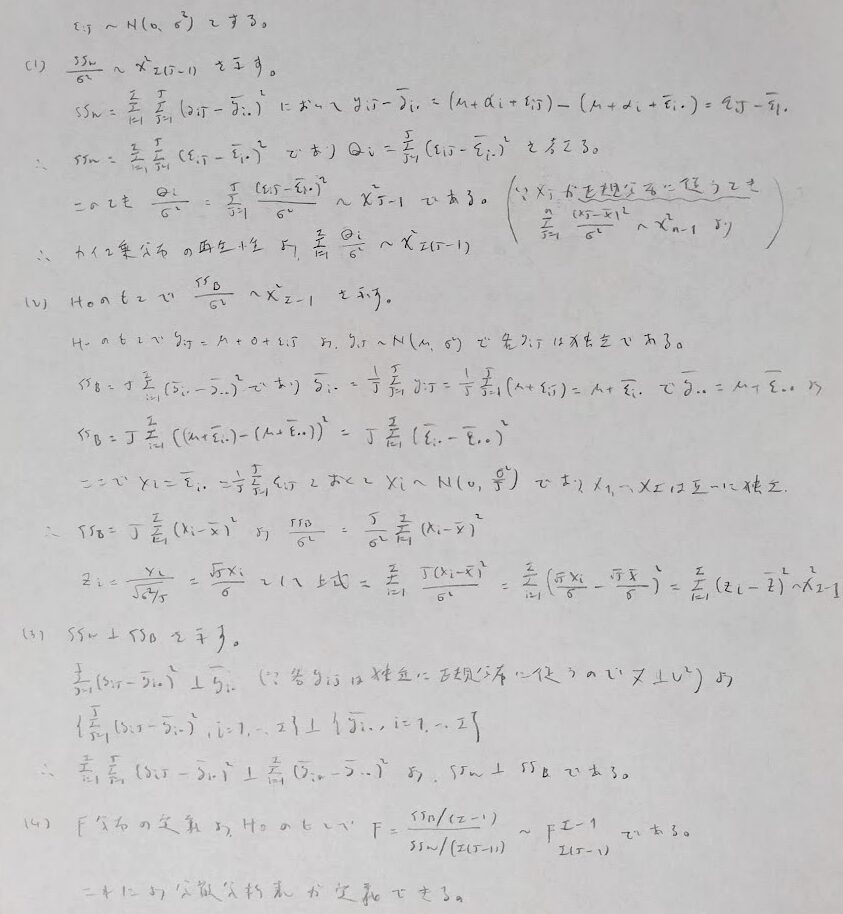 ε_{ij} ~ N(0, σ²) とする。
(1) SS_W/σ² ~ χ²_{I(J-1)} を示す。
SS_W = Σ_{i=1}^{I} Σ_{j=1}^{J} (y_{ij} - ȳ_{i・})² において y_{ij} - ȳ_{i・} = (μ + α_i + ε_{ij}) - (μ + α_i + ε̄_{i・}) = ε_{ij} - ε̄_{i・}
∴ SS_W = Σ_{i=1}^{I} Σ_{j=1}^{J} (ε_{ij} - ε̄_{i・})² であり Q_i = Σ_{j=1}^{J} (ε_{ij} - ε̄_{i・})² を考える。
このとき Q_i/σ² = Σ_{j=1}^{J} (ε_{ij} - ε̄_{i・})²/σ² ~ χ²_{J-1} である。 (∵ X_j が正規分布に従うとき Σ_{j=1}^{n} (X_j - X̄)²/σ² ~ χ²_{n-1} より)
∴ カイ2乗分布の再生性より Σ_{i=1}^{I} Q_i/σ² ~ χ²_{I(J-1)}
(2) H₀のもとで SS_B/σ² ~ χ²_{I-1} を示す。
H₀のもとで y_{ij} = μ + 0 + ε_{ij} より y_{ij} ~ N(μ, σ²) で各 y_{ij} は独立である。
SS_B = J Σ_{i=1}^{I} (ȳ_{i・} - ȳ_{・・})² であり ȳ_{i・} = 1/J Σ_{j=1}^{J} y_{ij} = 1/J Σ_{j=1}^{J} (μ + ε_{ij}) = μ + ε̄_{i・} で ȳ_{・・} = μ + ε̄_{・・} より
SS_B = J Σ_{i=1}^{I} ((μ + ε̄_{i・}) - (μ + ε̄_{・・}))² = J Σ_{i=1}^{I} (ε̄_{i・} - ε̄_{・・})²
ここで X_i = ε̄_{i・} = 1/J Σ_{j=1}^{J} ε_{ij} とおくと X_i ~ N(0, σ²/J) であり X_1, ~ X_I は互いに独立.
∴ SS_B = J Σ_{i=1}^{I} (X_i - X̄)² より SS_B/σ² = J/σ² Σ_{i=1}^{I} (X_i - X̄)²
Z_i = X_i/√(σ²/J) = √J X_i/σ として 上式 = Σ_{i=1}^{I} J(X_i - X̄)²/σ² = Σ_{i=1}^{I} (√J X_i/σ - √J X̄/σ)² = Σ_{i=1}^{I} (Z_i - Z̄)² ~ χ²_{I-1}
(3) SS_W ⊥ SS_B を示す。
Σ_{j=1}^{J} (y_{ij} - ȳ_{i・})² ⊥ ȳ_{i・} (∵ 各 y_{ij} は独立に正規分布に従うので X̄ ⊥ U²) より
{Σ_{j=1}^{J} (y_{ij} - ȳ_{i・})², i=1, … I} ⊥ {ȳ_{i・}, i=1, … I}
∴ Σ_{i=1}^{I} Σ_{j=1}^{J} (y_{ij} - ȳ_{i・})² ⊥ Σ_{i=1}^{I} (ȳ_{i・} - ȳ_{・・})² より、SS_W ⊥ SS_B である。
(4) F分布の定義より H₀のもとで F = (SS_B/(I-1))/(SS_W/(I(J-1))) ~ F^{I-1}_{I(J-1)} である。
これにより分散分析表が定義できる。